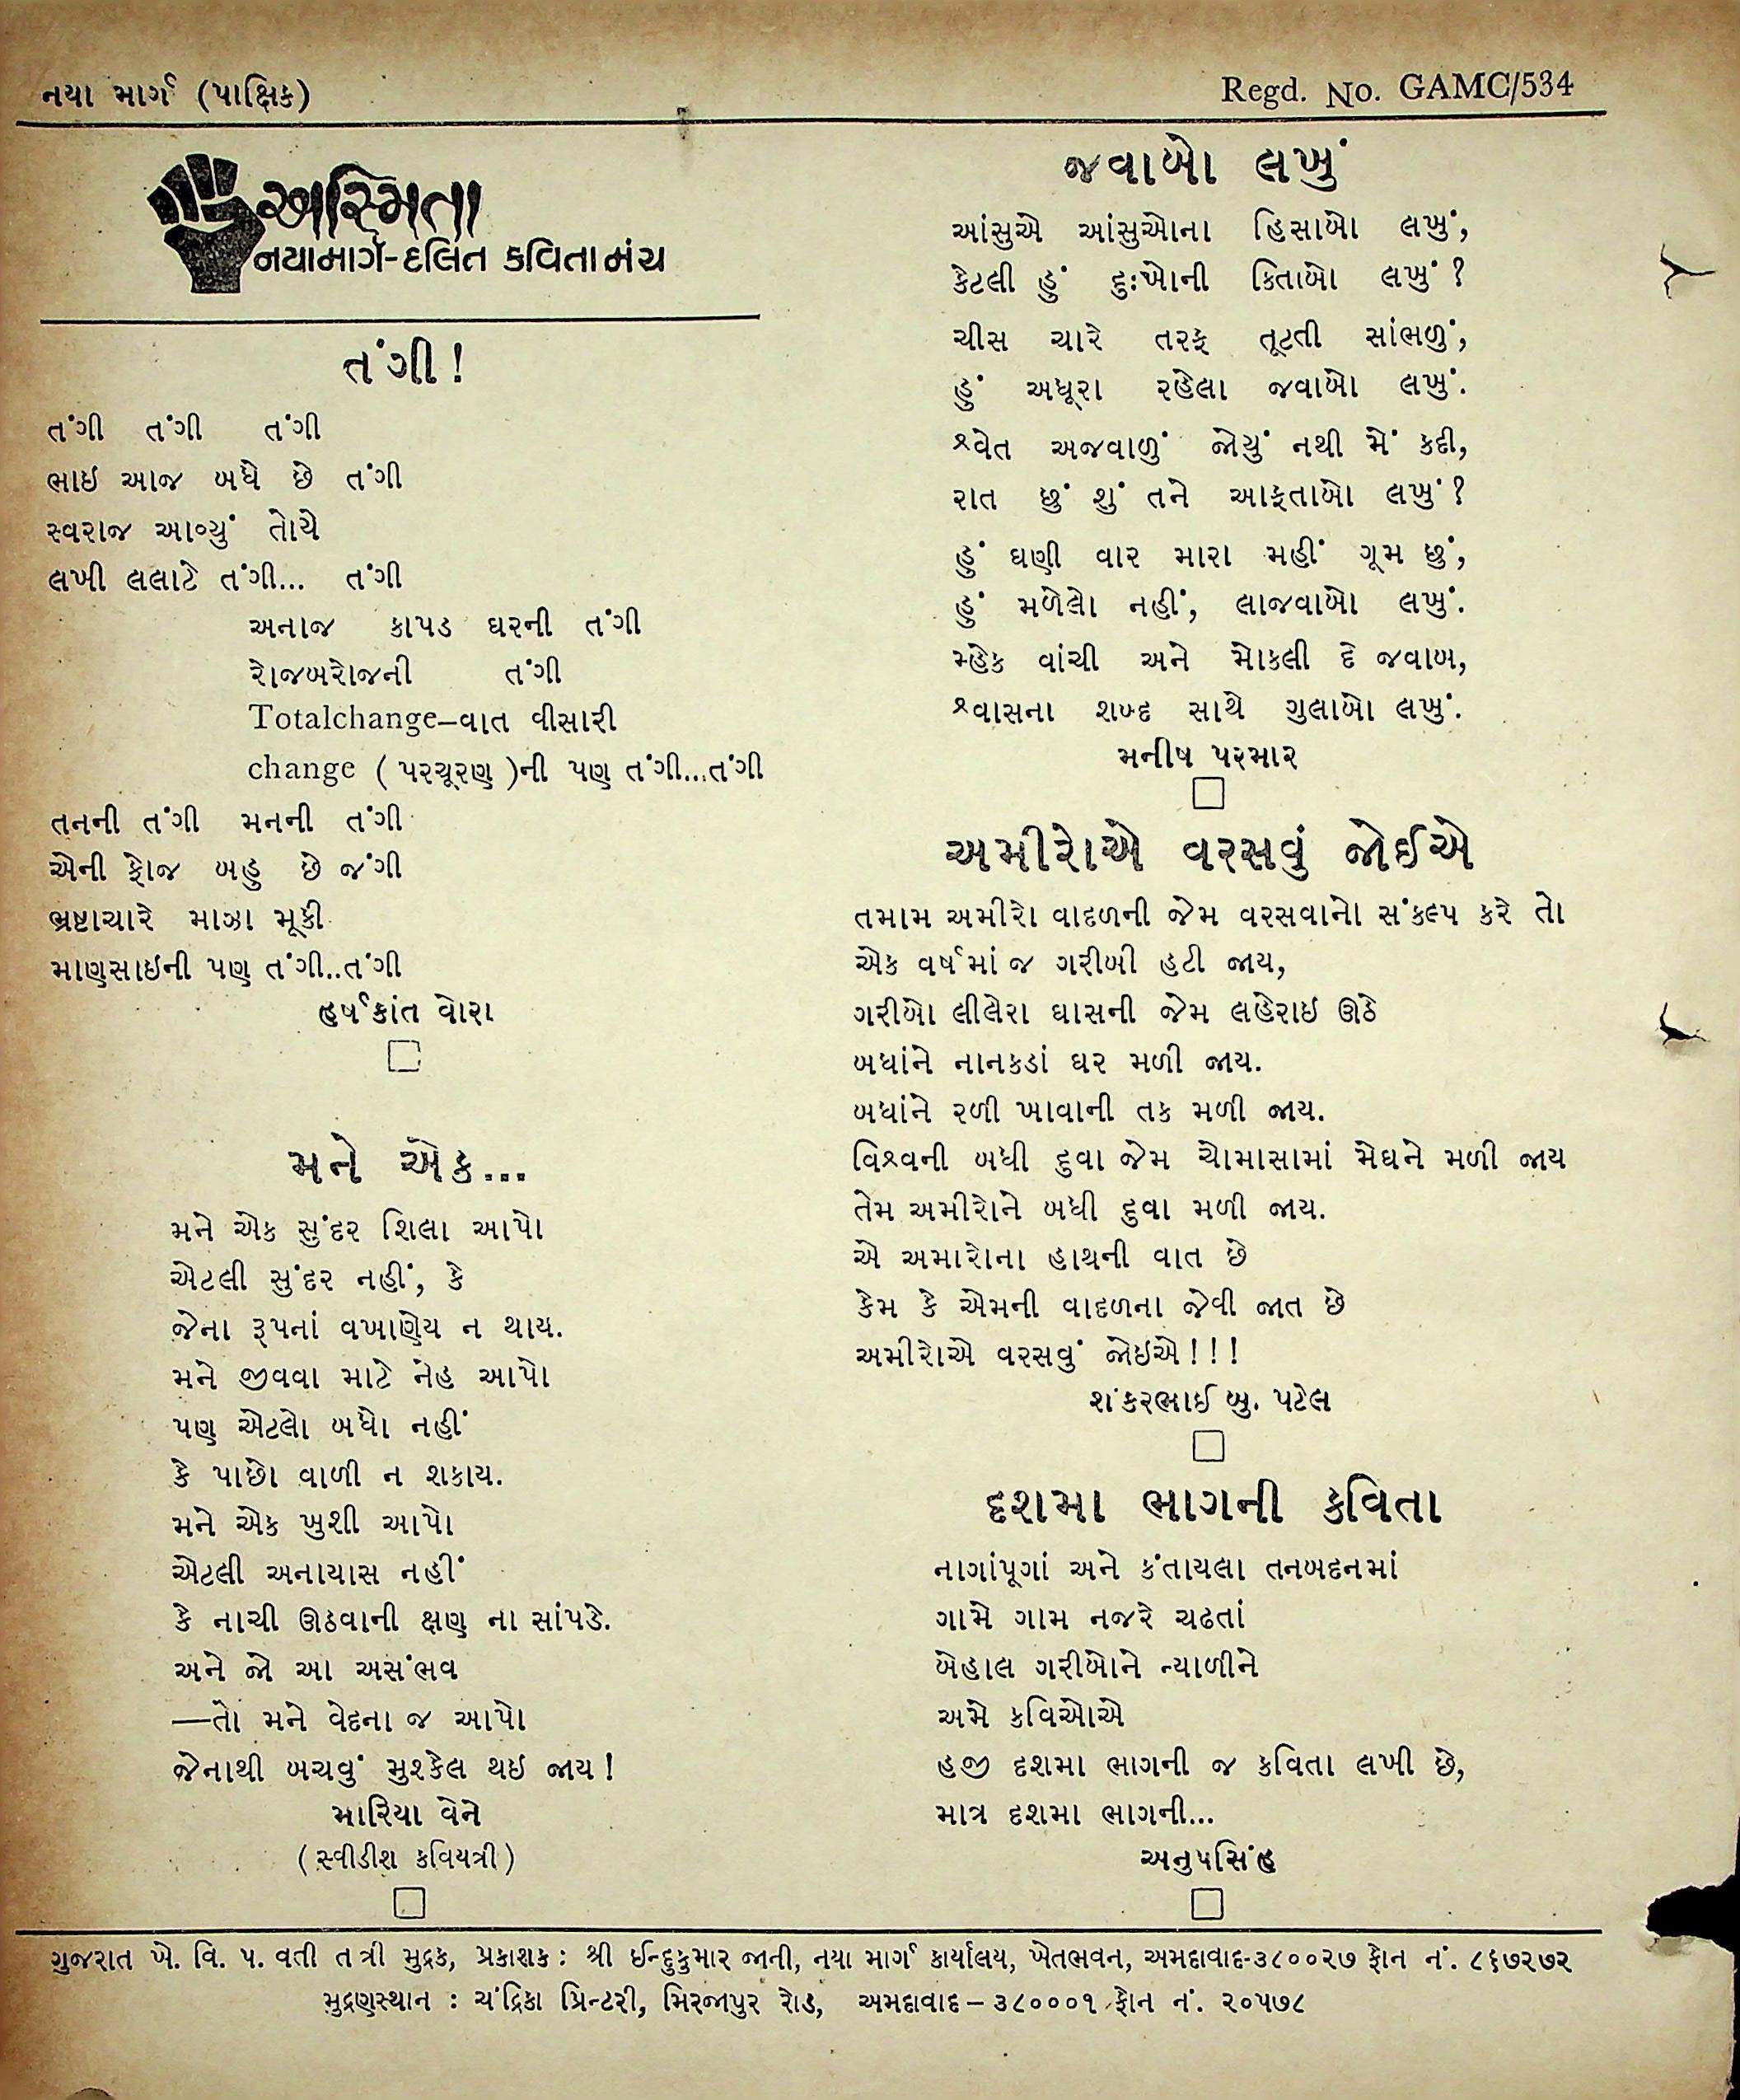 નયા માર્ગ (પાક્ષિક)
Regd. No. GAMC/534
અસ્મિતા
નયામાર્ગ-દલિત કવિતામંચ
તંગી!
તંગી તંગી તંગી
ભાઇ આજ બધે છે તંગી
સ્વરાજ આવ્યું તોયે
લખી લલાટે તંગી... તંગી
અનાજ કાપડ ઘરની તંગી
રોજબરોજની તંગી
Totalchange–વાત વીસારી
change (પરચૂરણ)ની પણ તંગી...તંગી
તનની તંગી મનની તંગી
એની ફોજ બહુ છે જંગી
ભ્રષ્ટાચારે માઝા મૂકી
માણસાઇની પણ તંગી..તંગી
હર્ષકાંત વોરા
મને એક...
મને એક સુંદર શિલા આપો
એટલી સુંદર નહીં, કે
જેના રૂપનાં વખાણેય ન થાય.
મને જીવવા માટે નેહ આપો
પણ એટલો બધો નહીં
કે પાછો વાળી ન શકાય.
મને એક ખુશી આપો
એટલી અનાયાસ નહીં
કે નાચી ઊઠવાની ક્ષણ ના સાંપડે.
અને જો આ અસંભવ
—તો મને વેદના જ આપો
જેનાથી બચવું મુશ્કેલ થઇ જાય!
મારિયા વેને
(સ્વીડીશ કવિયત્રી)
જવાબો લખું
આંસુએ આંસુઓના હિસાબો લખું,
કેટલી હું દુઃખોની કિતાબો લખું?
ચીસ ચારે તરફ તૂટતી સાંભળું,
હું અધૂરા રહેલા જવાબો લખું.
શ્વેત અજવાળું જોયું નથી મેં કદી,
રાત છું શું તને આફતાબો લખું?
હું ઘણી વાર મારા મહીં ગૂમ છું,
હું મળેલો નહીં, લાજવાબો લખું.
મ્હેક વાંચી અને મોકલી દે જવાબ,
શ્વાસના શબ્દ સાથે ગુલાબો લખું.
મનીષ પરમાર
અમીરોએ વરસવું જોઈએ
તમામ અમીરો વાદળની જેમ વરસવાનો સંકલ્પ કરે તો
એક વર્ષમાં જ ગરીબી હટી જાય,
ગરીબો લીલેરા ઘાસની જેમ લહેરાઇ ઊઠે
બધાંને નાનકડાં ઘર મળી જાય.
બધાંને રળી ખાવાની તક મળી જાય.
વિશ્વની બધી દુવા જેમ ચોમાસામાં મેઘને મળી જાય
તેમ અમીરોને બધી દુવા મળી જાય.
એ અમારોના હાથની વાત છે
કેમ કે એમની વાદળના જેવી જાત છે
અમીરોએ વરસવું જોઇએ!!!
શંકરભાઈ બુ. પટેલ
દશમા ભાગની કવિતા
નાગાંપૂગાં અને કંતાયલા તનબદનમાં
ગામે ગામ નજરે ચઢતાં
બેહાલ ગરીબોને ન્યાળીને
અમે કવિઓએ
હજી દશમા ભાગની જ કવિતા લખી છે,
માત્ર દશમા ભાગની...
અનુપસિંહ
ગુજરાત ખે. વિ. પ. વતી તંત્રી મુદ્રક, પ્રકાશક: શ્રી ઈન્દુકુમાર જાની, નયા માર્ગ કાર્યાલય, ખેતભવન, અમદાવાદ-૩૮૦૦૨૭ ફોન નં. ૮૬૭૨૭૨
મુદ્રણસ્થાન : ચંદ્રિકા પ્રિન્ટરી, મિરજાપુર રોડ, અમદાવાદ – ૩૮૦૦૦૧ ફોન નં. ૨૦૫૭૮